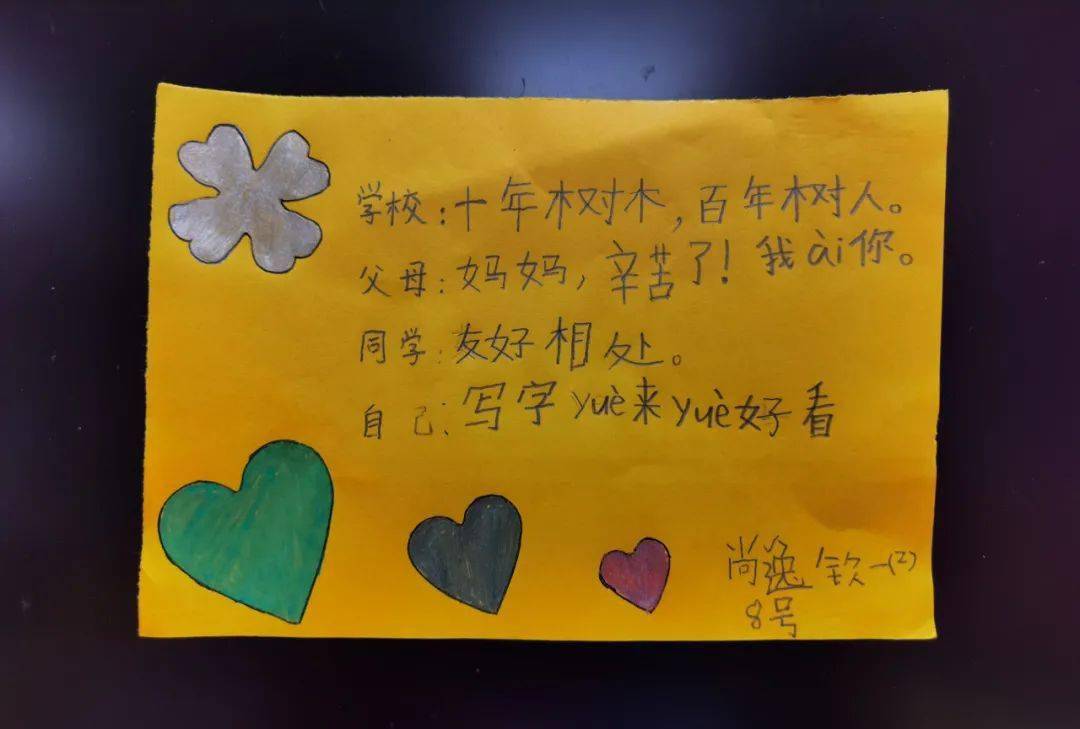 学校:十年树木,百年树人。
父母:妈妈,辛苦了!我ài你。
同学:友好相处。
自己:写字yuè来yuè好看
尚逸钦一(2)
8号